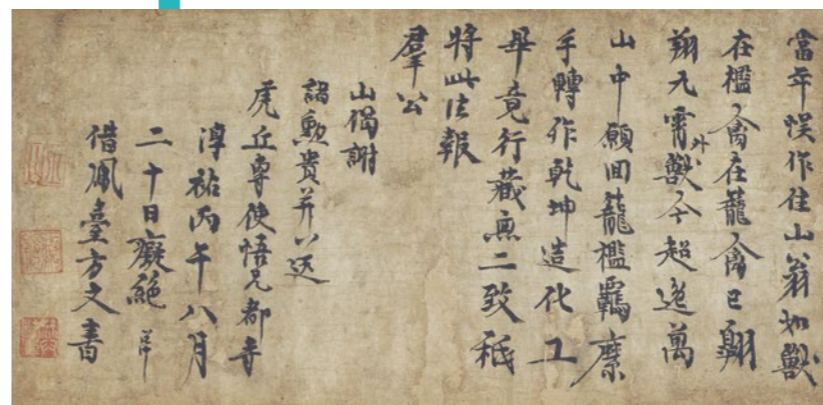 當年悞作住山翁如獸
在檻禽在籠禽已翱
翔九霄外獸今超逸萬
山中願回籠檻羈縻
手轉作乾坤造化工
畢竟行藏無二致秖
將此法報
羣公
山偈謝
諸勳貴并以送
虎丘專使悟兄都寺
淳祐丙午八月
二十日癡絕
借鳳臺方丈書